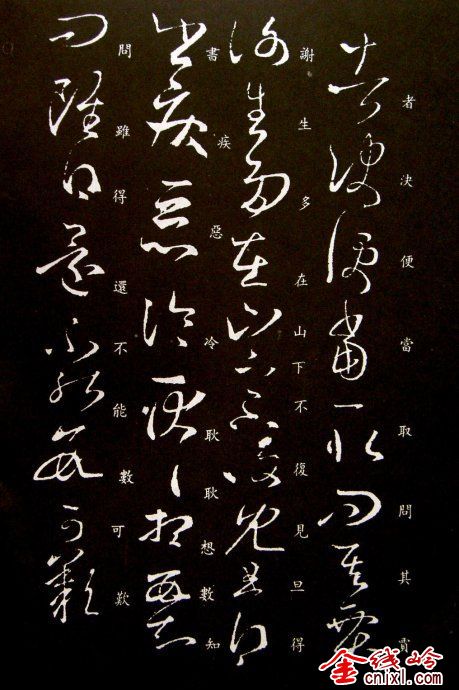 者決便當取問其賈
謝生多在山下不復見旦得
書疾惡冷耿耿想數知
問雖得還不能數可歎
金线岭
cnjxl.com